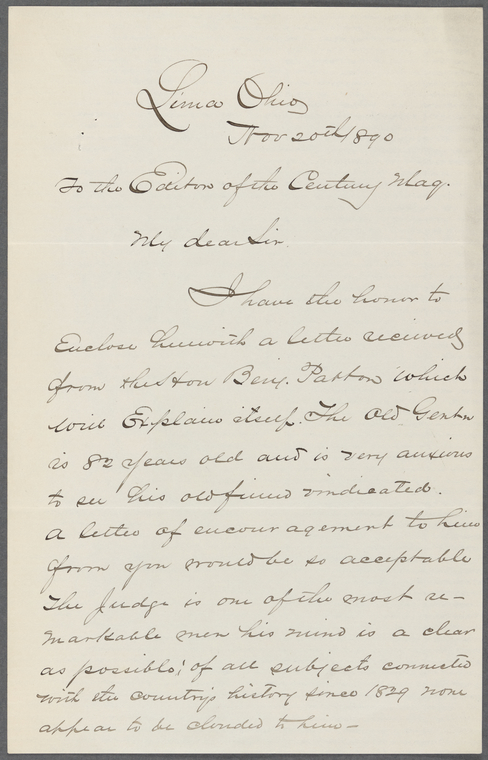 Lima Ohio
Nov 20th 1890
To the Editor of the Century Mag.
My dear Sir.
I have the honor to
Enclose herewith a letter received
from the Hon Benj. Patton which
will Explain itself. The Old Gentn
is 82 years old and is very anxious
to see his old friend vindicated.
A letter of encouragement to him
from you would be so acceptable
The Judge is one of the most re-
markable men his mind is a clear
as possible; of all subjects connected
with the country's history since 1829 none
appear to be clouded to him—